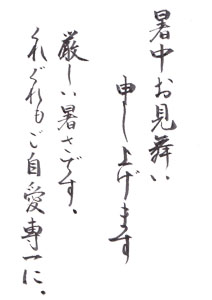 暑中お見舞い
申し上げます
厳しい暑さです、
くれぐれもご自愛専一に、